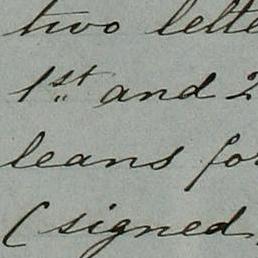 two lette
1st and 2
leans for
(signed